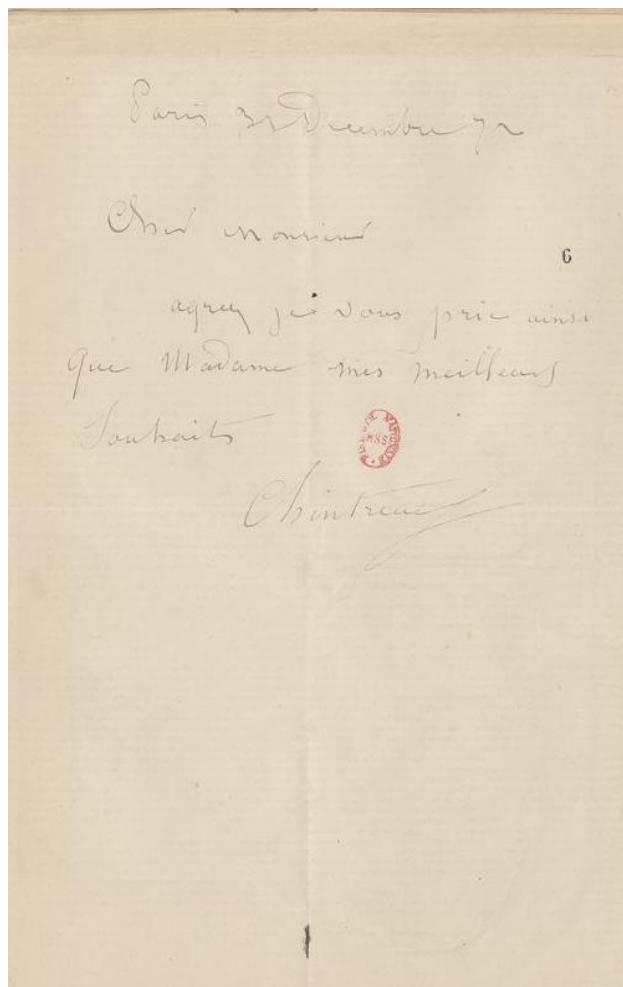 Paris 31 Decembre 72
Cher Monsieur
6
agreez je vous prie ainsi
que Madame mes meilleurs
Souhaits
MSS
Chintreuil